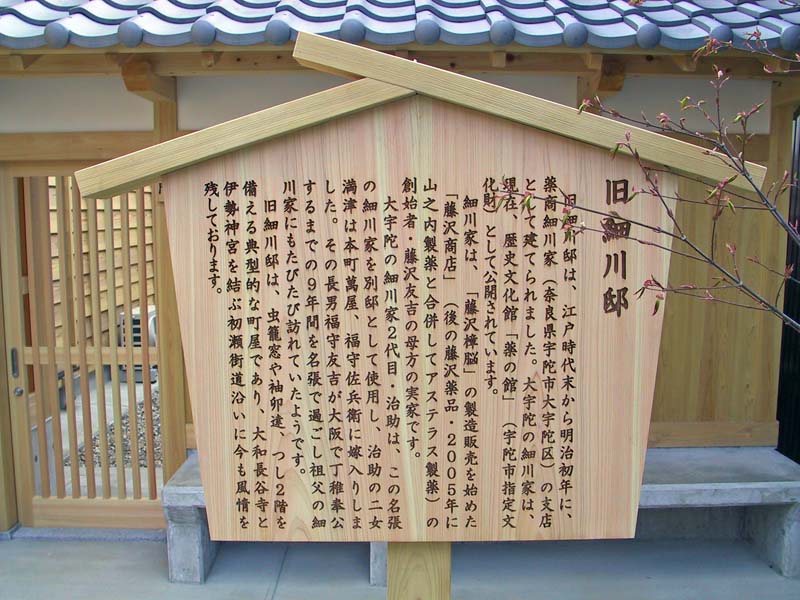 旧細川邸
旧細川邸は、江戸時代末から明治初年に、
薬商細川家（奈良県宇陀市大宇陀区）の支店
として建てられました。大宇陀の細川家は、
現在、歴史文化館「薬の館」（宇陀市指定文
化財）として公開されています。
細川家は、「藤沢樟脳」の製造販売を始めた
「藤沢商店」（後の藤沢薬品・２００５年に
山之内製薬と合併してアステラス製薬）の
創始者・藤沢友吉の母方の実家です。
大宇陀の細川家２代目・治助は、この名張
の細川家を別邸として使用し、治助の二女
満津は本町萬屋、福守佐兵衛に嫁入りしま
した。その長男福守友吉が大阪で丁稚奉公
するまでの９年間を名張で過ごし祖父の細
川家にもたびたび訪れていたようです。
旧細川邸は、虫籠窓や袖卯達、つし２階を
備える典型的な町屋であり、大和長谷寺と
伊勢神宮を結ぶ初瀬街道沿いに今も風情を
残しております。